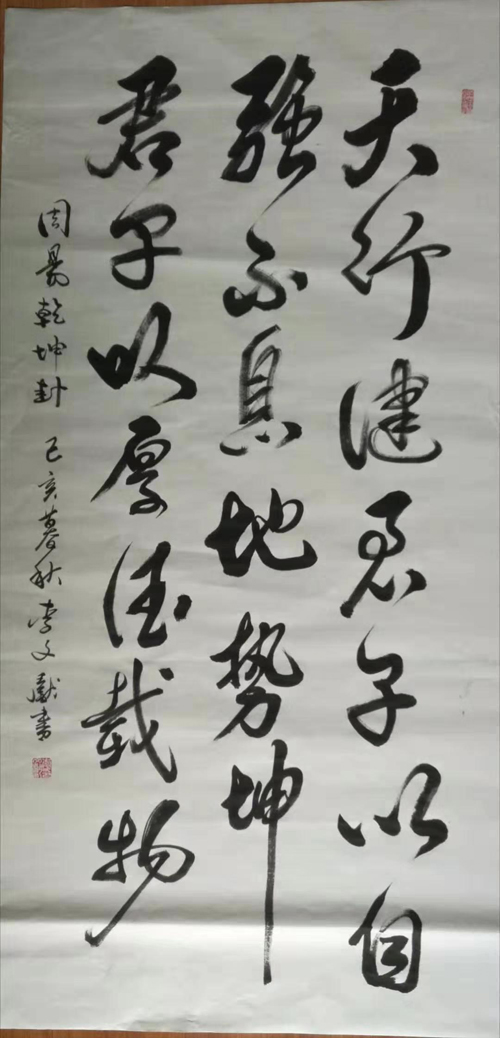 天行健君子以自
强不息地势坤
君子以厚德载物
周易乾坤卦 己亥暮秋 李文献书